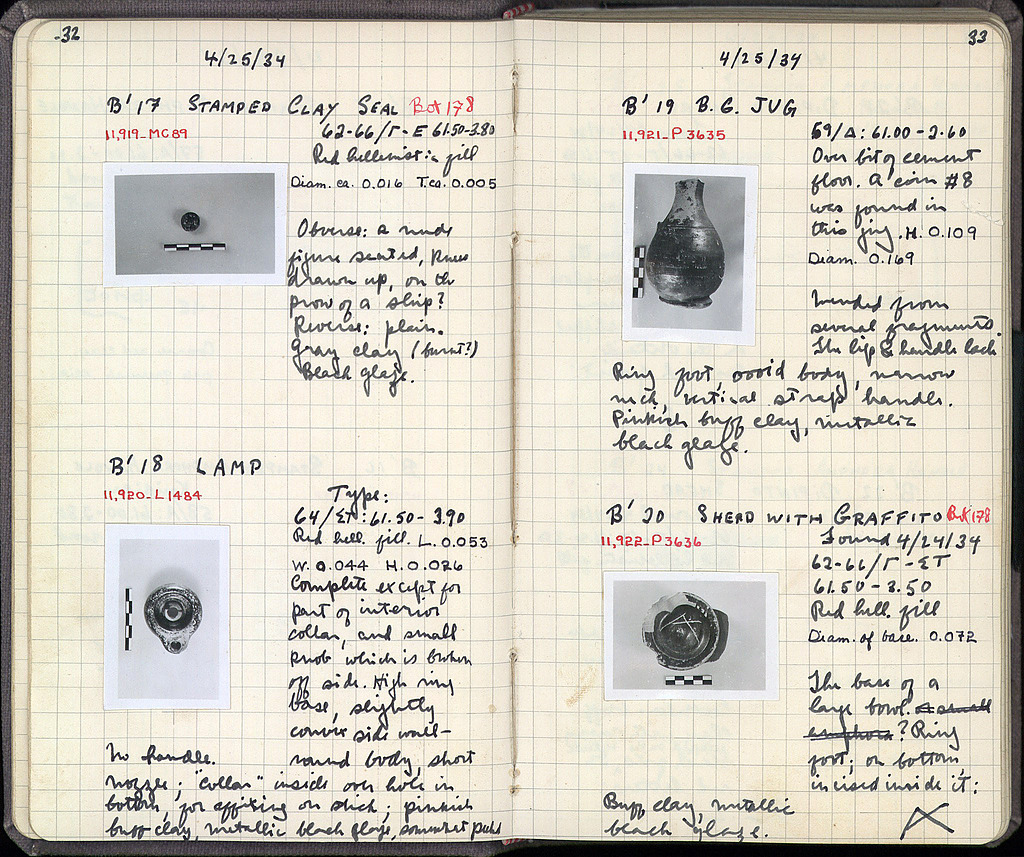 32
4/25/34
B'17 STAMPED CLAY SEAL Bot 178
11,919-MC89
62-66/Γ-E 61.50-3.80
Red hellenistic fill
Diam. ca. 0.016 T. ca. 0.005
Obverse: a nude
figure seated, knees
drawn up, on the
prow of a ship?
Reverse: plain.
Gray clay (burnt?)
Black glaze.
B'18 LAMP
11,920-L1484
Type:
64/ΣΤ: 61.50-3.90
Red hell. fill. L. 0.053
W. 0.044 H. 0.026
Complete except for
part of interior
collar, and small
knob which is broken
off side. High ring
base, slightly
convex side wall-
No handle. round body, short
nozzle; "collar" inside over hole in
bottom, for affixing on stick; pinkish
buff clay, metallic black glaze, somewhat
33
4/25/34
B'19 B.G. JUG
11,921-P3635
59/Δ: 61.00-2.60
Over bit of cement
floor. A coin #8
was found in
this jug. H. 0.109
Diam. 0.169
Mended from
several fragments.
The lip & handle lack
Ring foot, ovoid body, narrow
neck, vertical strap handle.
Pinkish buff clay, metallic
black glaze.
B'20 SHERD WITH GRAFFITO Bot 178
11,922-P3636
Found 4/24/34
62-66/Γ-ΣΤ
61.50-3.50
Red hell fill
Diam. of base. 0.072
The base of a
large bowl. a small
amphora? Ring
foot; on bottom,
incised inside it:
Buff clay, metallic
black glaze.